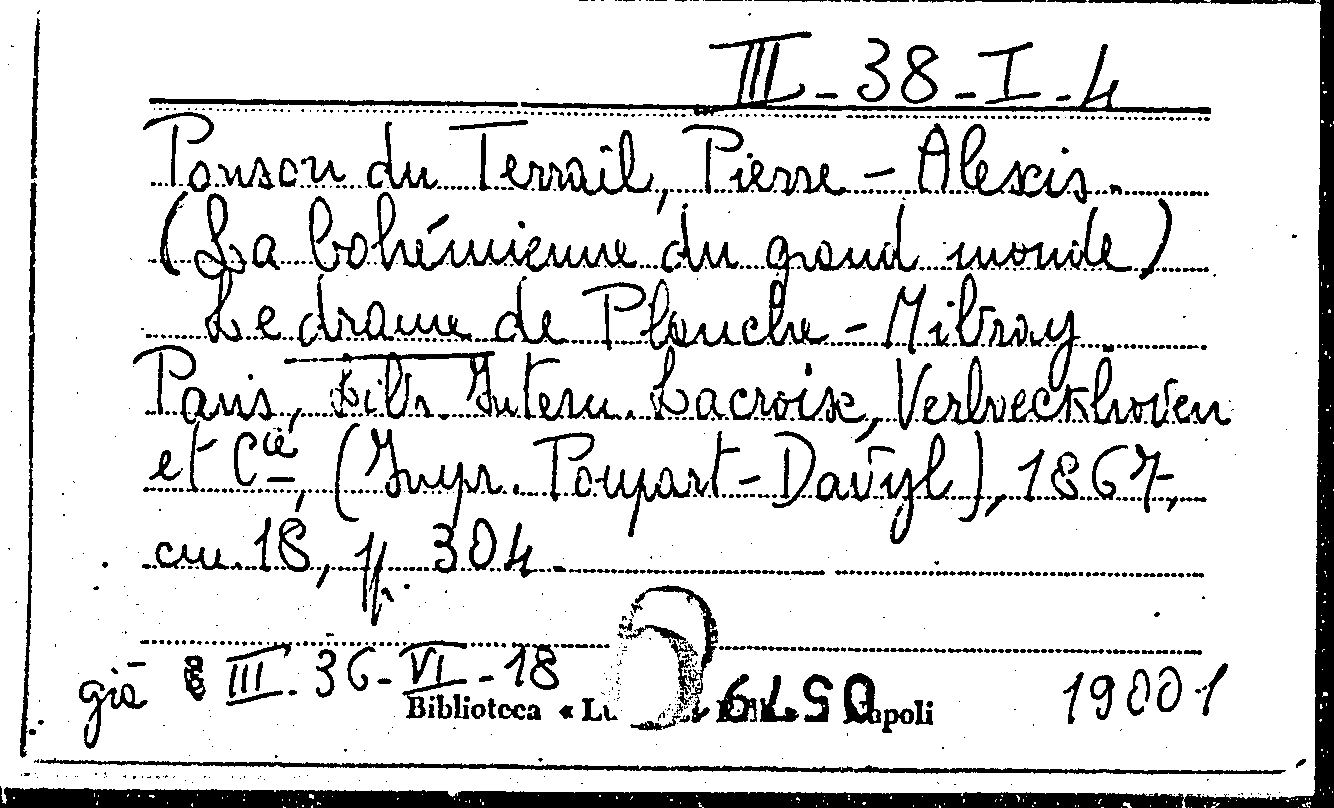 III-38-I-4
Ponson du Terrail, Pierre-Alexis.
(La bohémienne du grand monde)
Le drame de Planche-Mibray
Paris, Libr. Intern. Lacroix, Verboeckhoven
et Cie, (Impr. Poupart-Davyl), 1867,
cm. 18, p. 304.
già III-36-VI-18
Biblioteca « 
19001